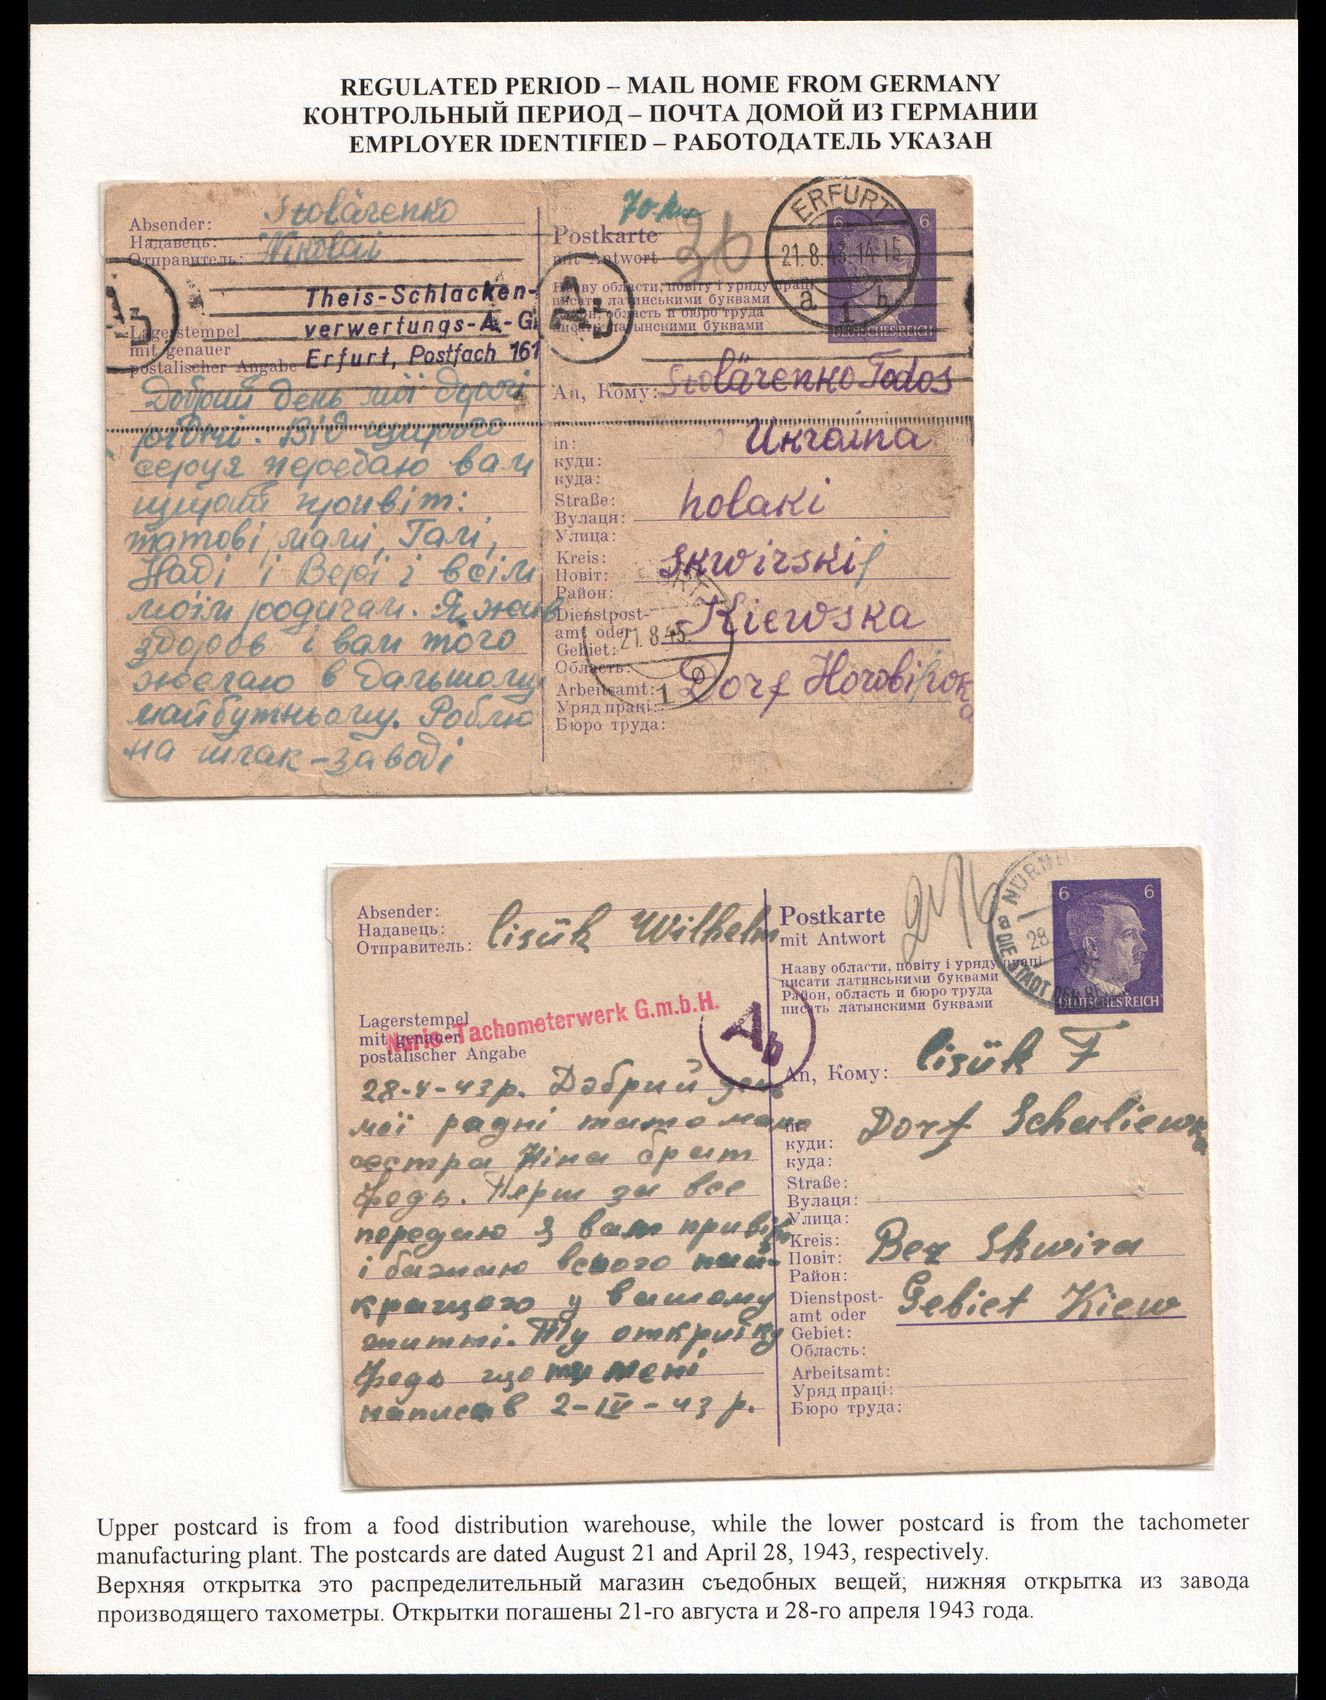 REGULATED PERIOD – MAIL HOME FROM GERMANY
КОНТРОЛЬНЫЙ ПЕРИОД – ПОЧТА ДОМОЙ ИЗ ГЕРМАНИИ
EMPLOYER IDENTIFIED – РАБОТОДАТЕЛЬ УКАЗАН
Absender:
Надавець:
Отправитель:
Nikolai
Theis-Schlacken-
verwertungs-A.-G.
Erfurt, Postfach 161
Lagerstempel
mit genauer
postalischer Angabe
Добрий день мої дорогі
рідні. Від щирого
серця передаю вам
щирий привіт:
татові, мамі, Галі,
Наді і Вері і всім
моїм родичам. Я жив
здоров і вам того
желаю в дальшому
майбутньому. Роблю
на шлак-заводі
36
ERFURT
21.8.43.14-15
a 1 b
6 6
DEUTSCHES REICH
Postkarte
mit Antwort
Назву области, повіту і уряду праці
писати латинськими буквами
Район, область и бюро труда
писать латынскими буквами
Ab
An, Кому:
Todos
in:
куди:
куда:
Ukraina
Straße:
Вулаця:
Улица:
holaki
Kreis:
Повіт:
Район:
Skwirskij
Dienstpost-
amt oder
Gebiet:
Область:
Kiewska
Arbeitsamt:
Уряд праці:
Бюро труда:
Dorf
21.8.43.
Absender:
Надавець:
Отправитель:
lisük Wilhelm
Lagerstempel
mit genauer
postalischer Angabe
Noris-Tachometerwerk G.m.b.H.
Ab
28-4-43 р. Добрий день
мої радні тато мамо
сестра Ніна брат
Федь. Перш за все
передаю я вам привіт
і бажаю всього най-
кращого у вашому
житті. Ту открітку
Федь що ти мені
написав 2-IV-43 р.
Postkarte
mit Antwort
Назву области, повіту і уряду праці
писати латинськими буквами
Район, область и бюро труда
писать латынскими буквами
28
DIE STADT DER
6 6
DEUTSCHES REICH
An, Кому:
lisük F
in:
куди:
куда:
Dorf Schuliewka
Straße:
Вулаця:
Улица:
Kreis:
Повіт:
Район:
Bez Skwira
Dienstpost-
amt oder
Gebiet:
Область:
Gebiet Kiew
Arbeitsamt:
Уряд праці:
Бюро труда:
Upper postcard is from a food distribution warehouse, while the lower postcard is from the tachometer
manufacturing plant. The postcards are dated August 21 and April 28, 1943, respectively.
Верхняя открытка это распределительный магазин съедобных вещей; нижняя открытка из завода
производящего тахометры. Открытки погашены 21-го августа и 28-го апреля 1943 года.